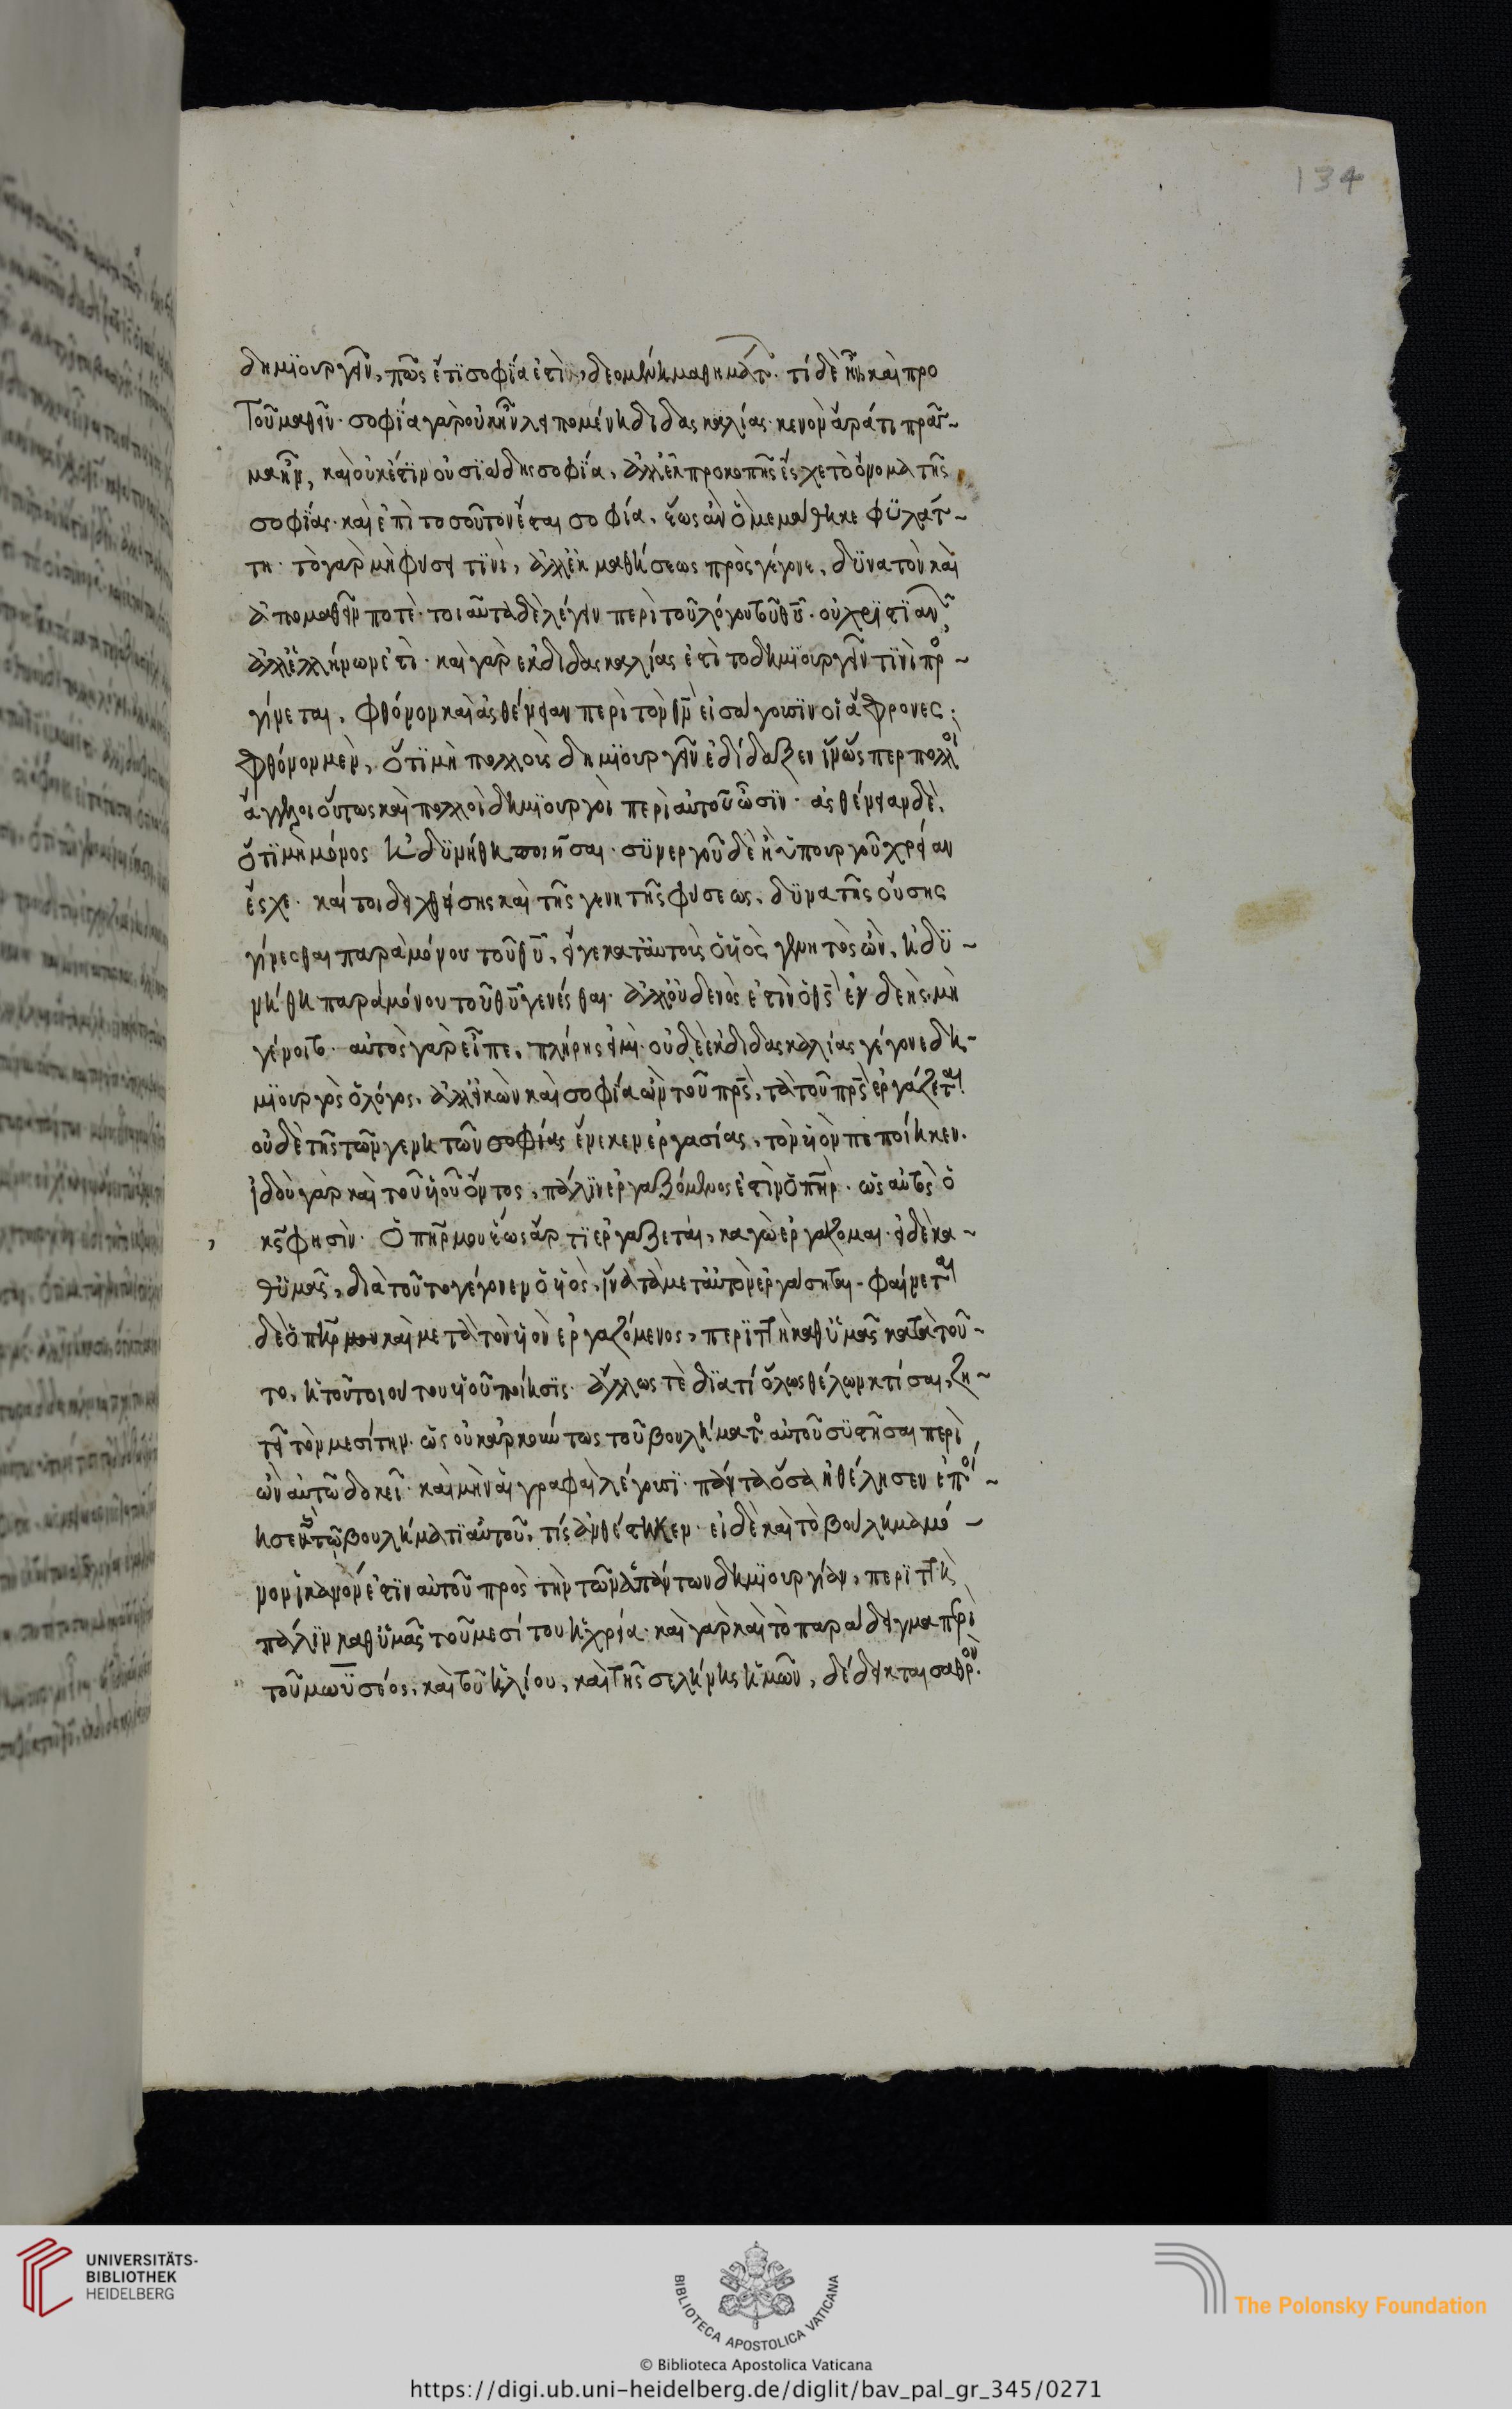 134
δημϊουργεῖν, πῶς ἔτϊ σοφΐα ἐστὶν, δεομένη μαθημάτων· τί δὲ ἦν καὶ πρὸ
τοῦ μαθεῖν· σοφΐα γὰρ οὐκ ἦν λειπομένη διδασκαλίας· κενὸν ἄρά τι πρᾶγ~
μα ἦν, καὶ οὐκ ἔστϊν οὐσϊώδης σοφΐα, ἀλλ' ἐκ προκοπῆς ἔσχε τὸ ὄνομα τῆς
σοφΐας· καὶ ἐπὶ τοσοῦτον ἔσται σοφία, ἕως ἂν ὃ μεμάθηκε φϋλάτ~
τη· τὸ γὰρ μὴ φύσει τϊνὶ, ἀλλ' ἐκ μαθήσεως προσγέγονε, δϋνατὸν καὶ
ἀπομαθεῖν ποτὲ· τοιαῦτα δὲ λέγειν περὶ τοῦ λόγου τοῦ θῦ· οὐ χρϊστϊανῶν,
ἀλλ' ἑλλήνων ἐστὶ· καὶ γὰρ εἰ ἐκ διδασκαλίας ἐστὶ τὸ δημϊουργεῖν τϊνὶ προσ~
γίνεται, φθόνον καὶ ἀσθένειαν περὶ τὸν θν εἰσάγουσϊν οἱ ἄφρονες·
φθόνον μὲν, ὅτϊ μὴ πολλοὺς δημϊουργεῖν ἐδίδαξεν ἵν' ὥσπερ πολλοὶ
ἄγγελοι οὕτως καὶ πολλοὶ δημϊουργοὶ περὶ αὐτοῦ ὦσϊν· ἀσθένειαν δὲ,
ὅτϊ μὴ μόνος ἠδϋνήθη ποιῆσαι· σϋνεργοῦ δὲ ἢ ὑπουργοῦ χρείαν
ἔσχε· καί τοι δειχθείσης καὶ τῆς γενητῆς φύσεως, δϋνατῆς οὔσης
γίνεσθαι παρὰ μόνου τοῦ θῦ, εἴγε κατ' αὐτοὺς ὁ ὑιὸς γενητὸς ὢν, ἠδϋ~
νήθη παρὰ μόνου τοῦ θῦ γενέσθαι· ἀλλ' οὐδενὸς ἐστὶν ὁ θς ἐνδεὴς μὴ
γένοιτο· αὐτὸς γὰρ εἶπε, πλήρης εἰμὶ· οὐδὲ ἐκ διδασκαλίας γέγονε δη~
μϊουργὸς ὁ λόγος, ἀλλ' εἰκὼν καὶ σοφία ὢν τοῦ πρς, τὰ τοῦ πρς ἐργάζεται
οὐδὲ τῆς τῶν γενητῶν σοφίας ἕνεκεν ἐργασίας, τὸν ὑιὸν πεποίηκεν·
ἰδοὺ γὰρ καὶ τοῦ ὑιοῦ ὄντος, πάλϊν ἐργαζόμενος ἐστὶν ὁ πηρ· ὡς αὐτὸς ὁ
κς φησὶν· ὁ πηρ μου ἕως ἄρτϊ ἐργάζεται, καγὼ ἐργάζομαι· εἰ δὲ κα~
θ' ὑμᾶς, διὰ τοῦτο γέγονεν ὁ ὑιὸς, ἵνα τὰ μετ' αὐτὸν ἐργάσηται· φαίνεται
δὲ ὁ πηρ μου καὶ μετὰ τὸν ὑιὸν ἐργαζόμενος, περϊττὴ καθ' ὑμᾶς κατὰ τοῦ~
το, ἡ τοῦ τοιούτου ὑιοῦ ποίησϊς· ἄλλως τὲ δϊατί ὅλως θέλων κτίσαι, ζη~
τεῖ τὸν μεσίτην· ὡς οὐκ ἀρκοῦντως τοῦ βουλήματος αὐτοῦ σϋστῆσαι περὶ
ὧν αὐτῶ δοκεῖ· καὶ μὴν αἱ γραφαὶ λέγουσϊ· πάντα ὅσα ἠθέλησεν ἐποί~
ησεν τῶ βουλήματϊ αὐτοῦ, τίς ἀνθέστηκεν· εἰ δὲ καὶ τὸ βούλημα μό~
νον ἱκανόν ἐστϊν αὐτοῦ πρὸς τὴν τῶν ἁπάντων δημϊουργίαν, περϊττὴ
πάλϊν καθ' ὑμᾶς τοῦ μεσίτου ἡ χρεία· καὶ γὰρ καὶ τὸ παράδειγμα περὶ
τοῦ μωϋσέος, καὶ τοῦ ἡλίου, καὶ τῆς σελήνης ἡμῶν, δέδεικται σαθρὸν.
UNIVERSITÄTS-
BIBLIOTHEK
HEIDELBERG
BIBLIOTECA APOSTOLICA VATICANA
The Polonsky Foundation
© Biblioteca Apostolica Vaticana
https://digi.ub.uni-heidelberg.de/diglit/bav_pal_gr_345/0271